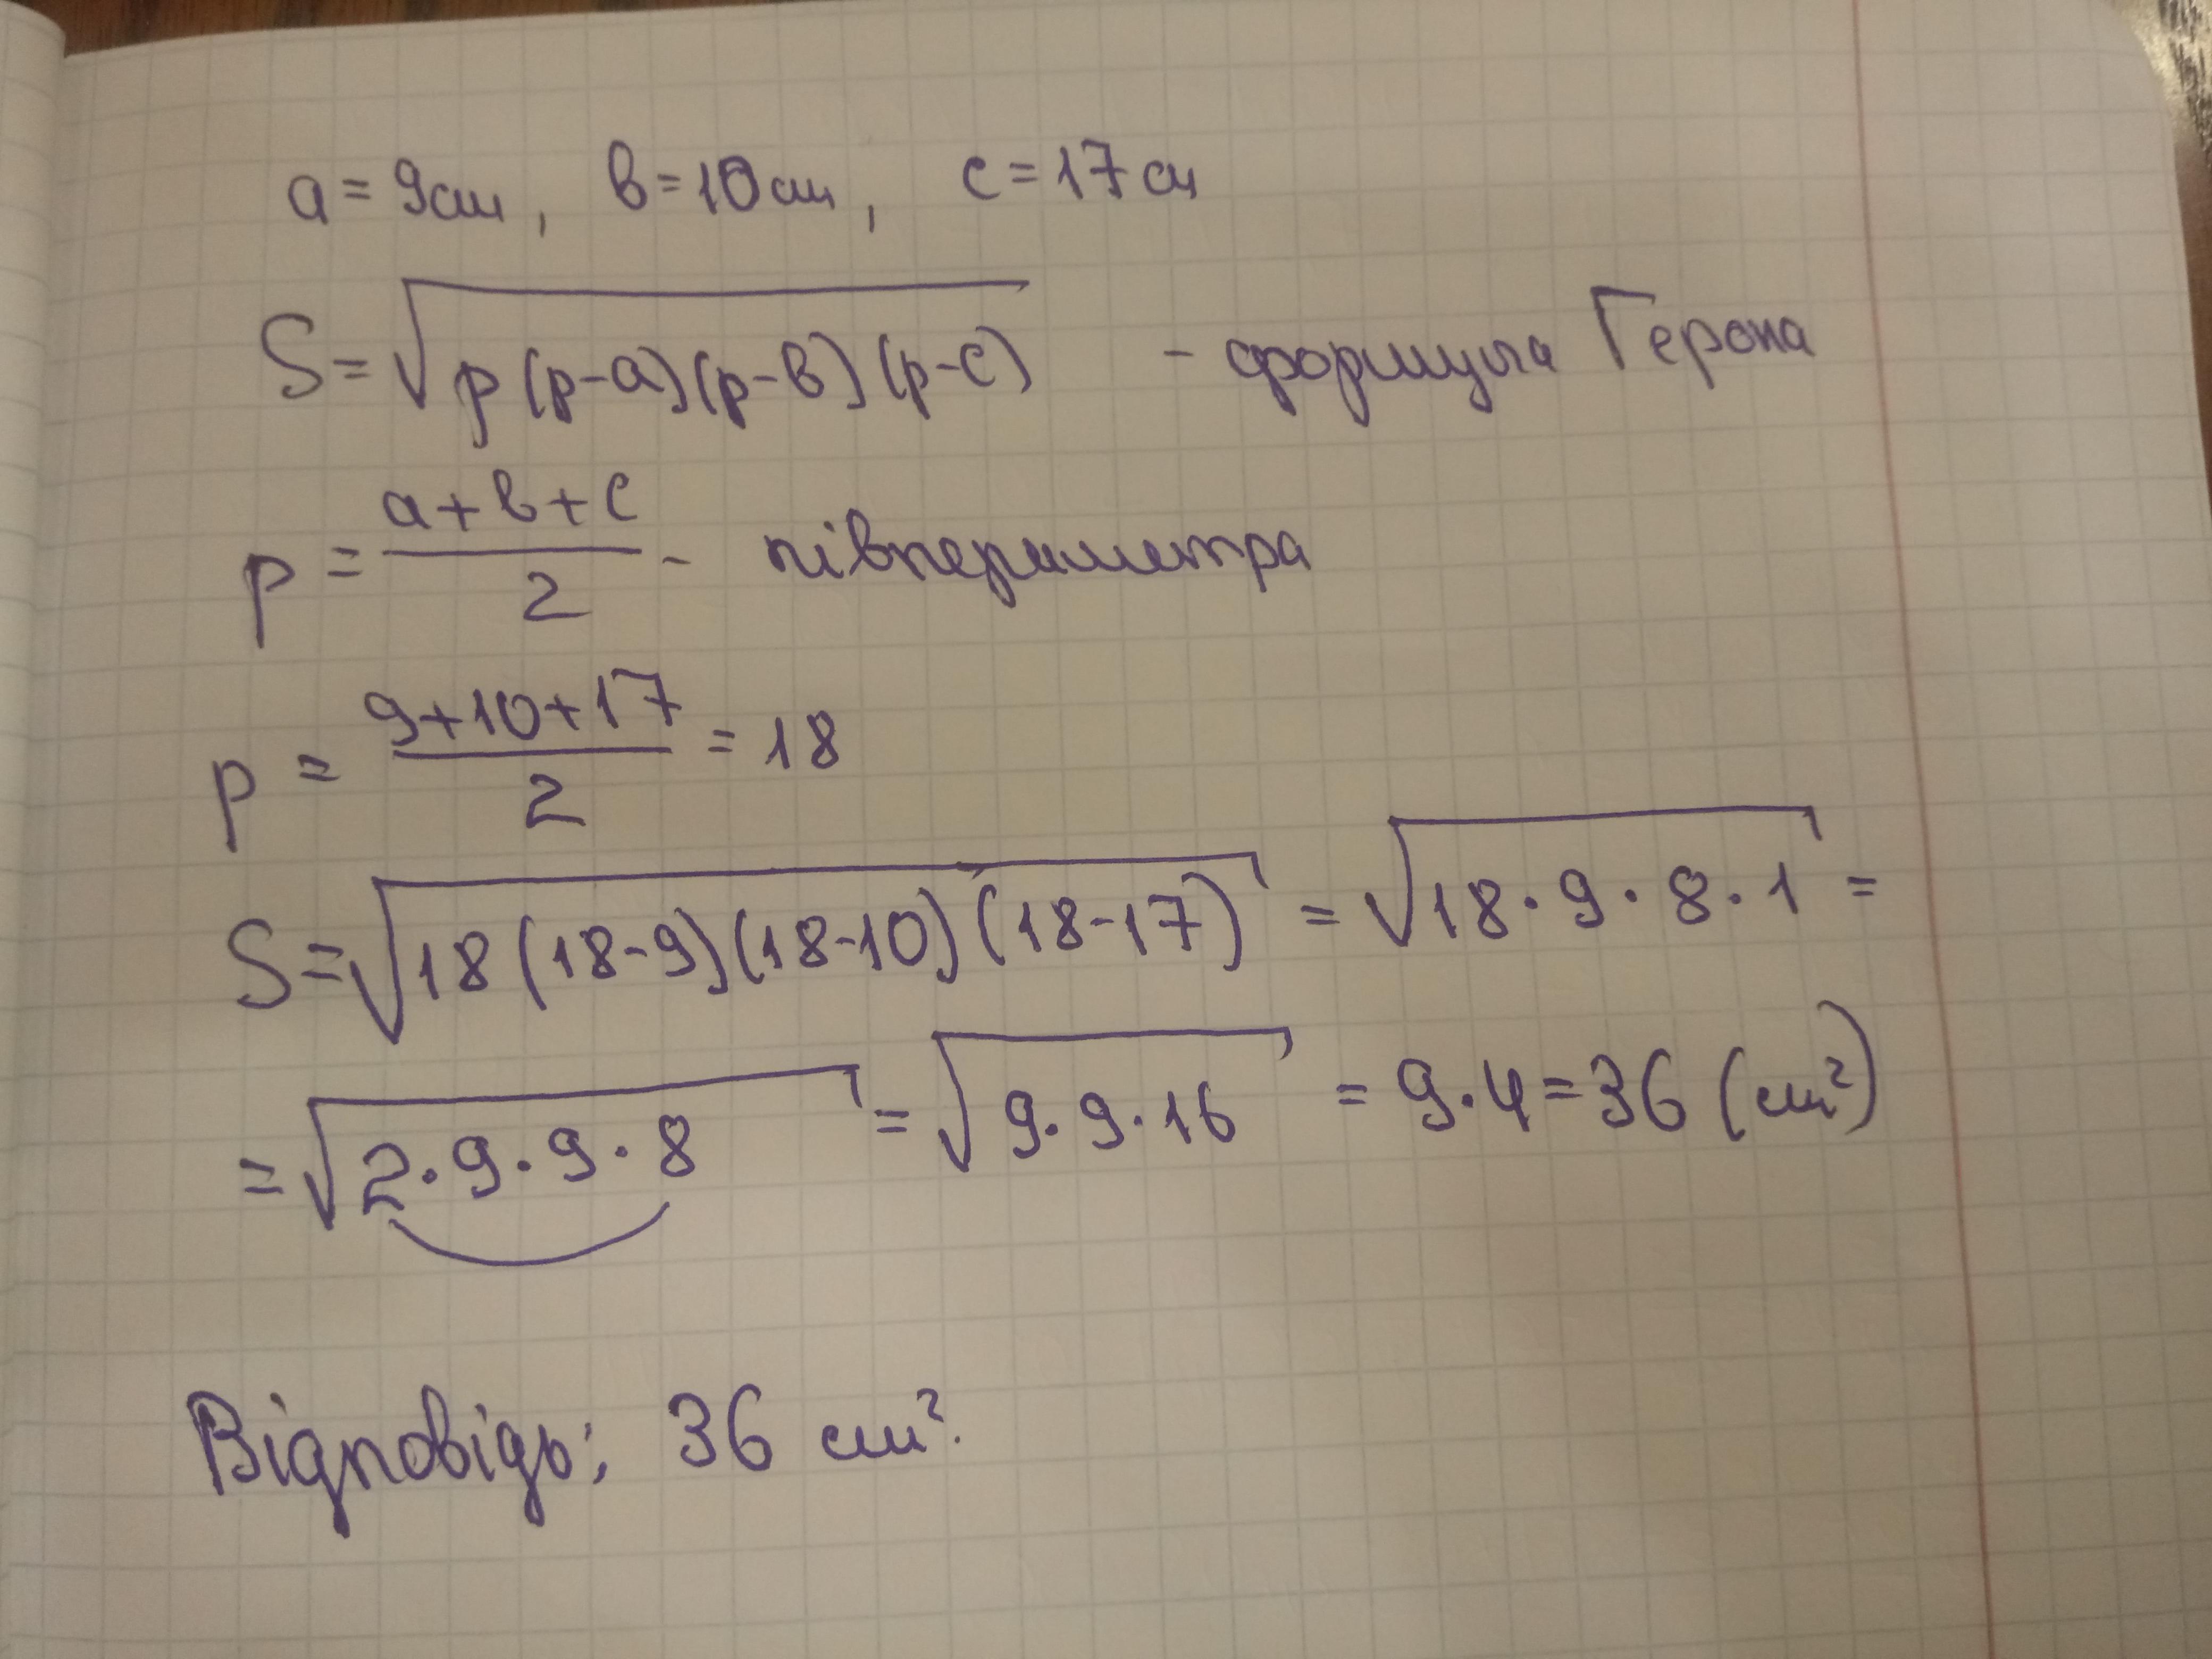 a = 9см, в = 10см, с = 17см
S = √p(p-a)(p-в)(p-c) - формула Герона
p = (a+в+c)/2 - півпериметра
p = (9+10+17)/2 = 18
S = √18(18-9)(18-10)(18-17) = √18·9·8·1 =
= √2·9·9·8 = √9·9·16 = 9·4 = 36 (см²)
Відповідь: 36 см².